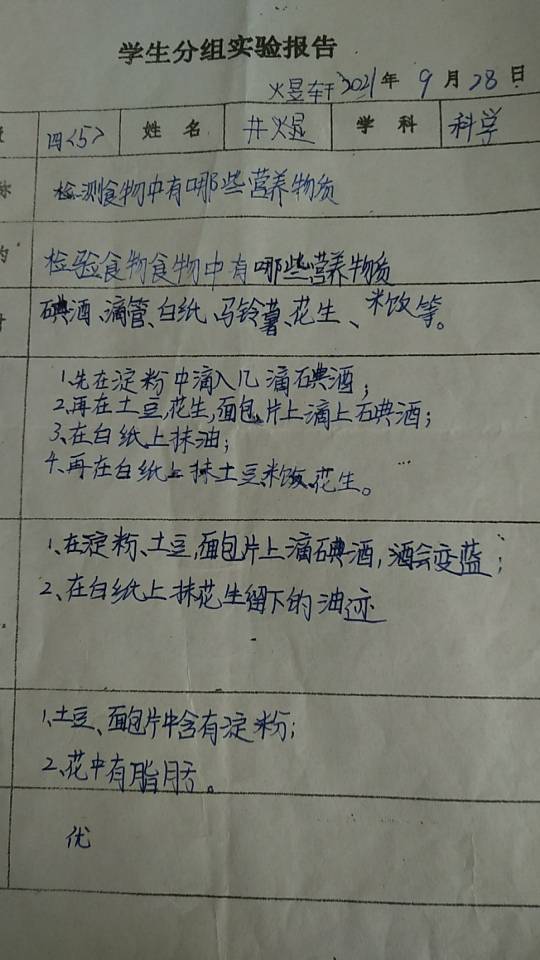 学生分组实验报告
火昱轩 2021年 9月28日
四<5> 姓 名 井煜 学 科 科学
称 检测食物中有哪些营养物质
的 检验食物食物中有哪些营养物质
碘酒、滴管、白纸、马铃薯、花生、米饭等。
1.先在淀粉中滴入几滴碘酒;
2.再在土豆,花生,面包片上滴上碘酒;
3、在白纸上抹油;
4、再在白纸上抹土豆、米饭、花生。
1、在淀粉、土豆,面包片上滴碘酒,酒会变蓝;
2、在白纸上抹花生留下的油迹
1、土豆、面包片中含有淀粉;
2、花中有脂肪。
优